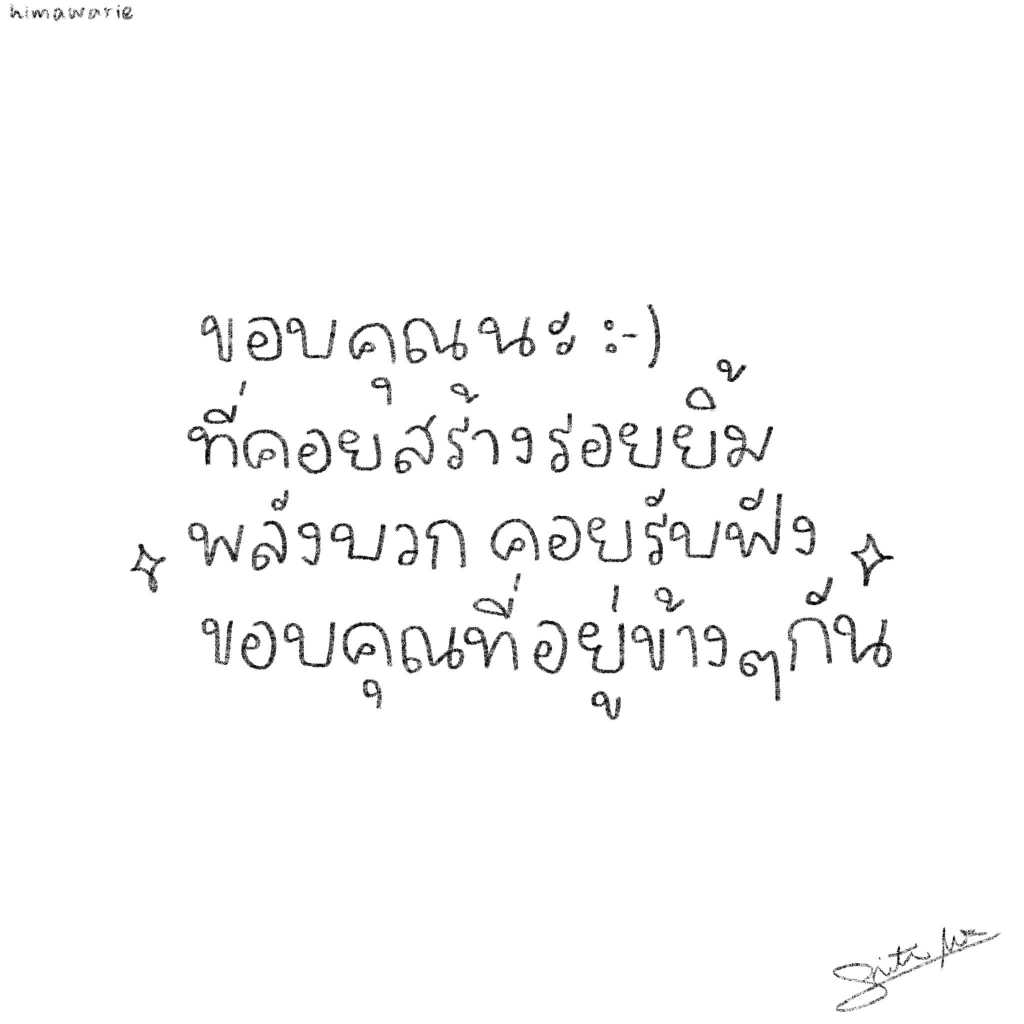 himawarie
ขอบคุณนะ :-)
ที่คอยสร้างรอยยิ้ม
พลังบวก คอยรับฟัง
ขอบคุณที่อยู่ข้างๆกัน